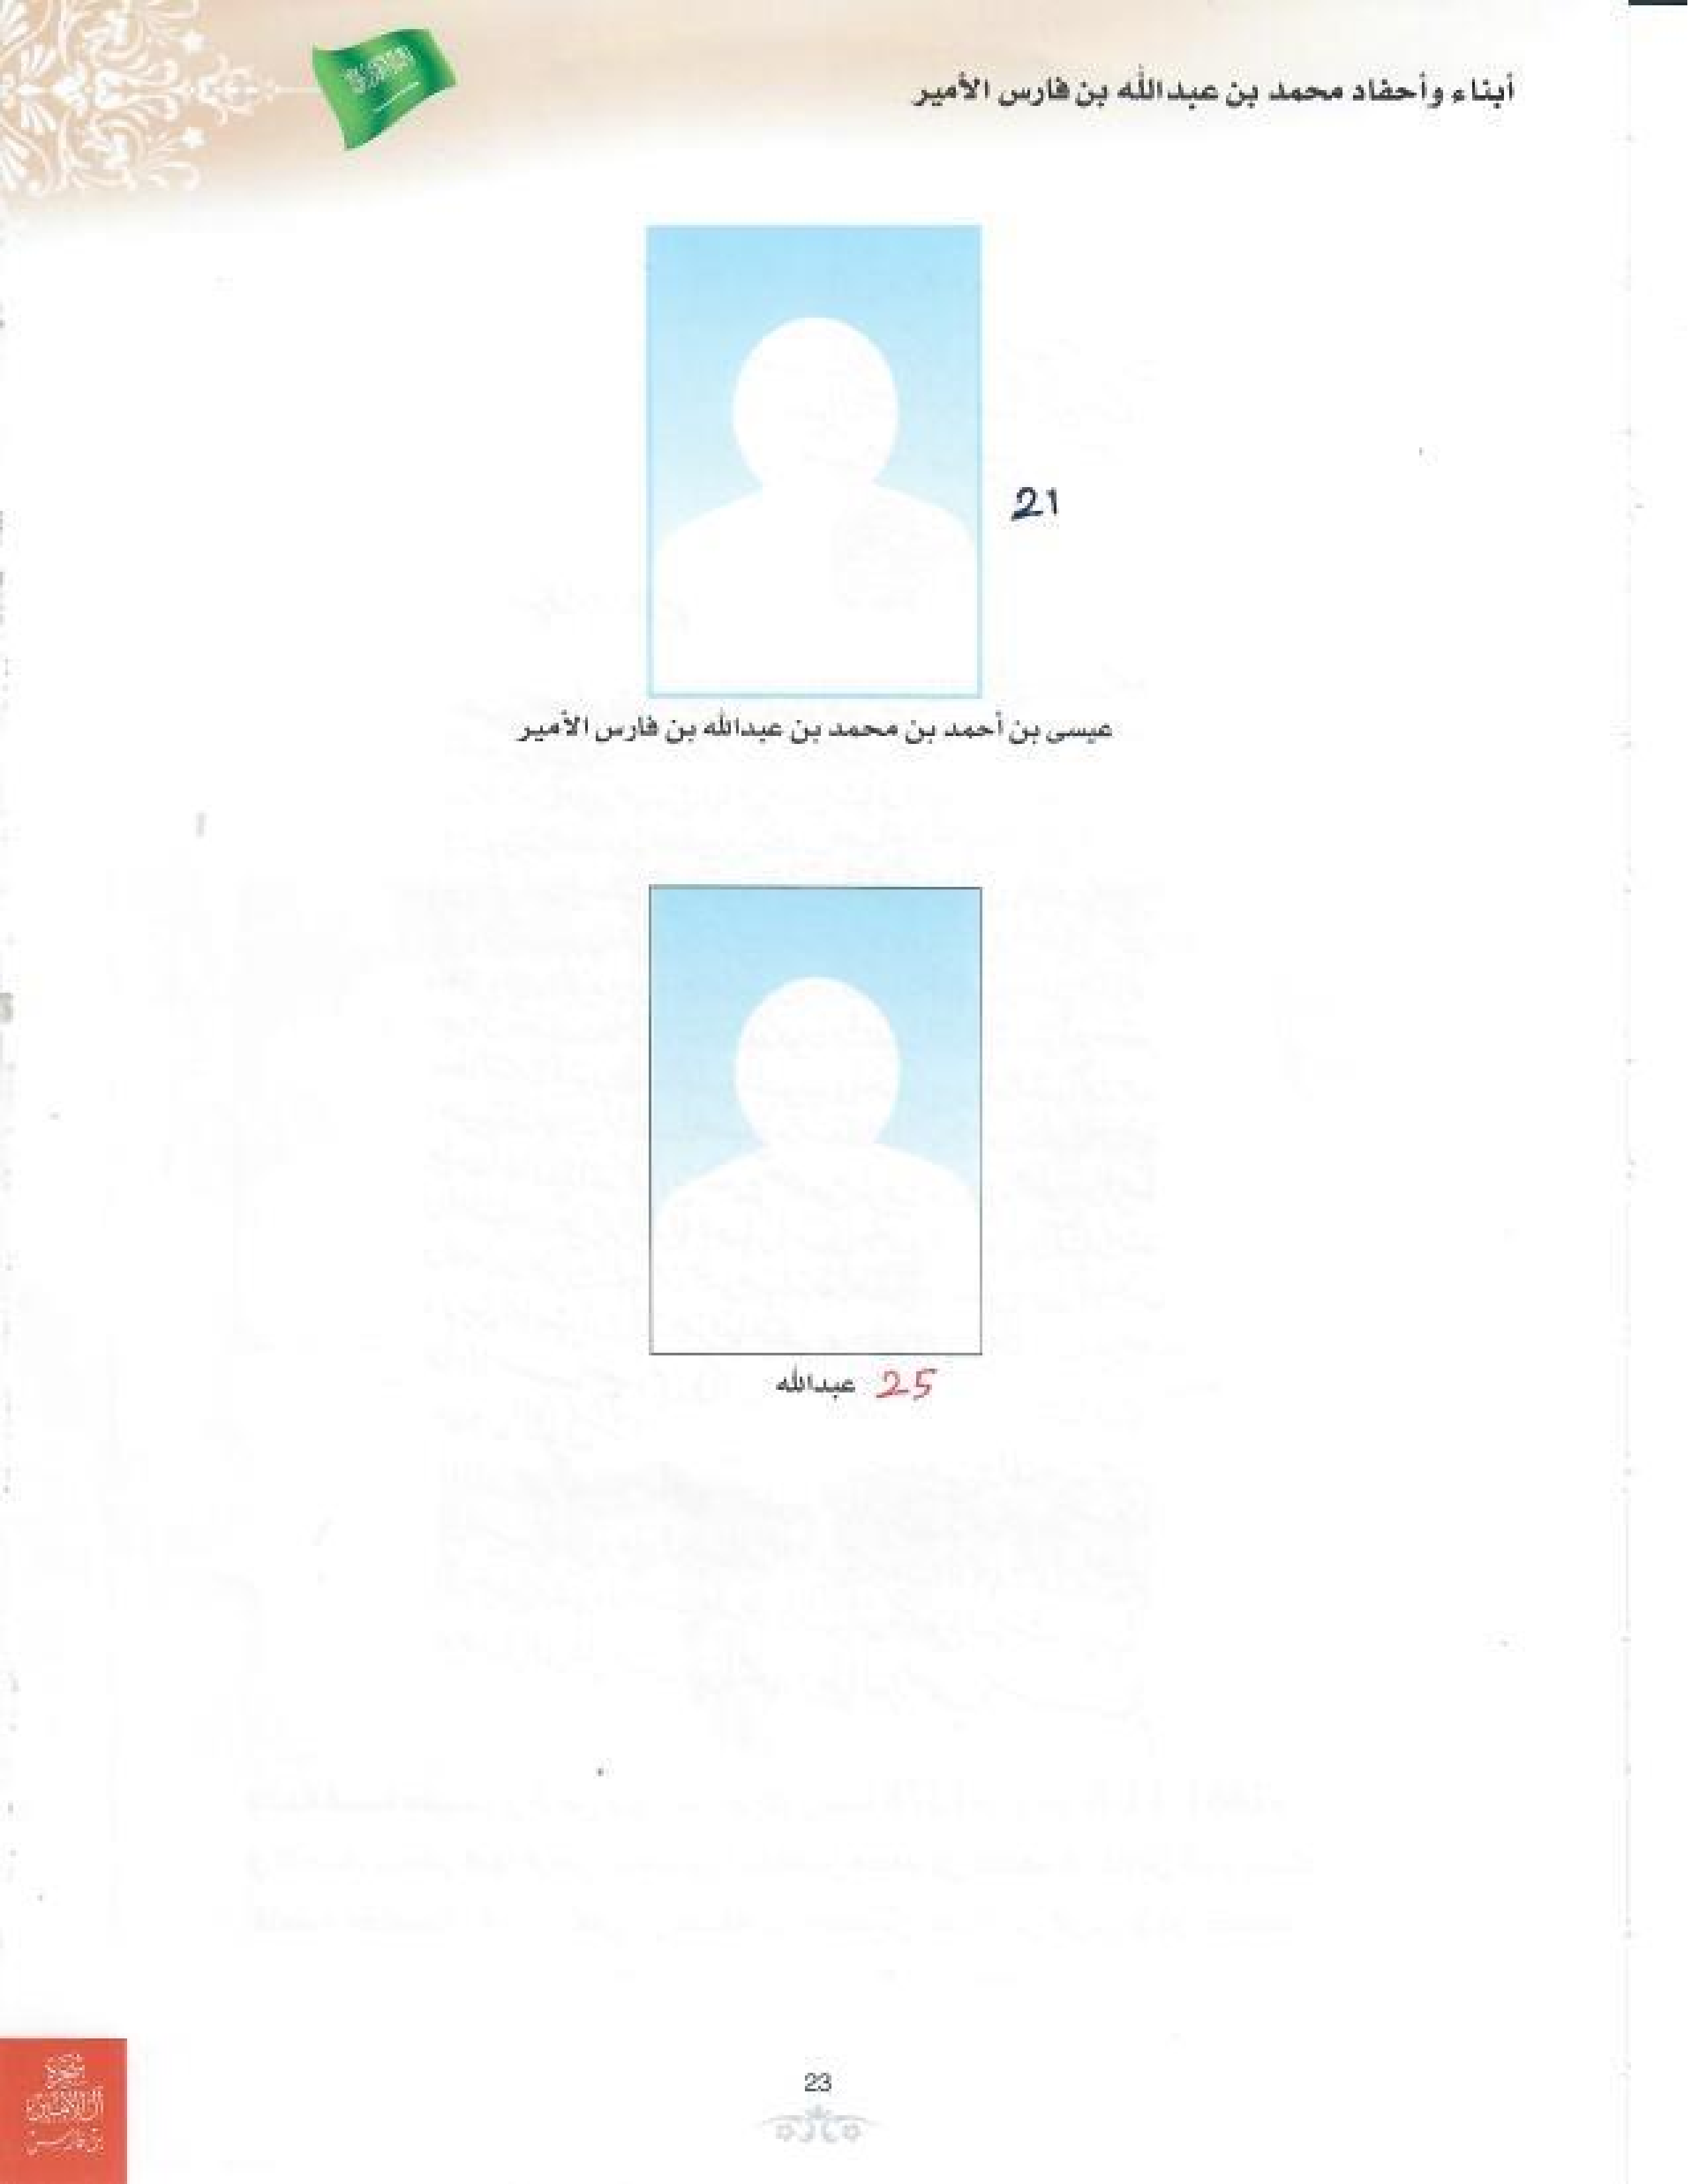 أبناء وأحفاد محمد بن عبدالله بن فارس الأمير
21
عيسى بن أحمد بن محمد بن عبدالله بن فارس الأمير
عبدالله 25
شجرة
آل الأمير
بن فارس
23